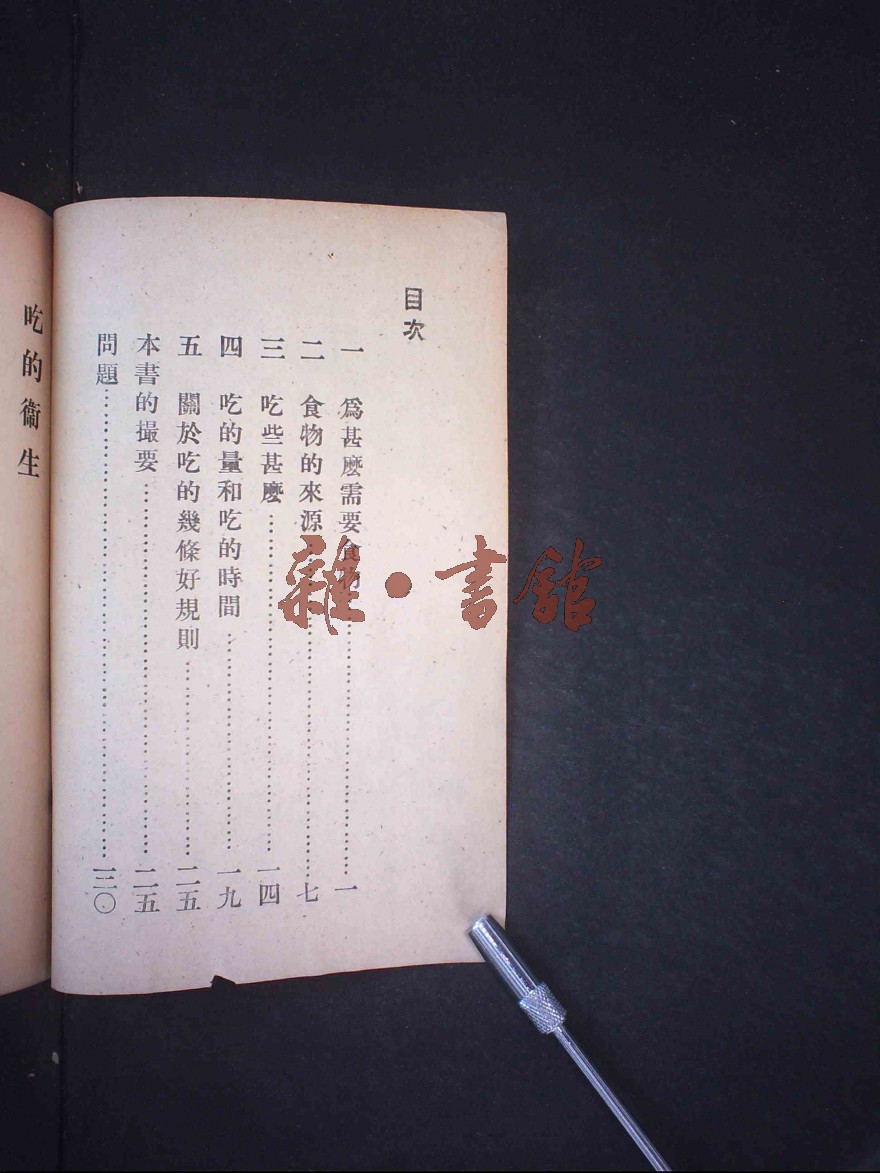 目次
一 爲甚麽需要食物……一
二 食物的來源……七
三 吃些甚麽……一四
四 吃的量和吃的時間……一九
五 關於吃的幾條好規則……二五
本書的撮要……二五
問題……三〇
吃的衞生
雜·書館